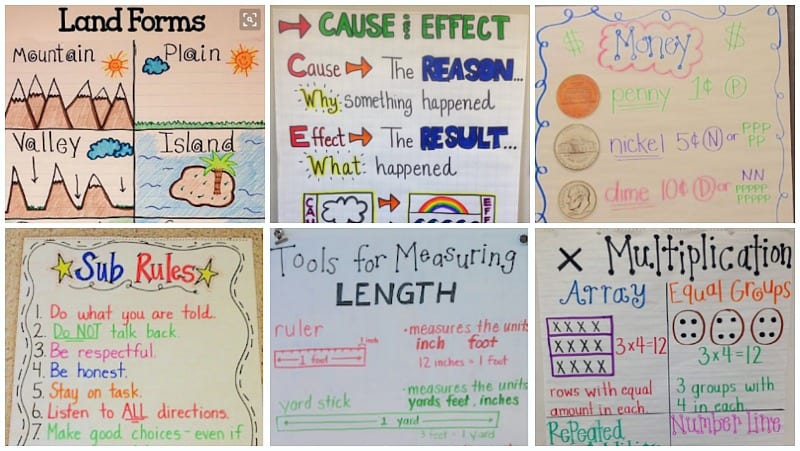 Land Forms
Mountain
Plain
Valley
Island
CAUSE & EFFECT
Cause The REASON...
Why: something happened
Effect The RESULT...
What: happened
CAU
EFF
$ Money $
penny 1¢ P
nickel 5¢ N or PPP
PP
dime 10¢ D or NN
PPPPP
PPPPP
Sub Rules
1. Do what you are told.
2. Do NOT talk back.
3. Be respectful.
4. Be honest.
5. Stay on task.
6. Listen to ALL directions.
7. Make good choices - even if
Tools for Measuring
LENGTH
ruler
1 inch
1 foot
• measures the units
inch foot
12 inches = 1 foot
yard stick
• measures the units
yards, feet, inches
1 yard
3 feet = 1 yard
x Multiplication
Array
XXXX
XXXX
XXXX
3x4=12
rows with equal
amount in each.
Equal Groups
3x4=12
3 groups with
4 in each
Repeated
Number Line